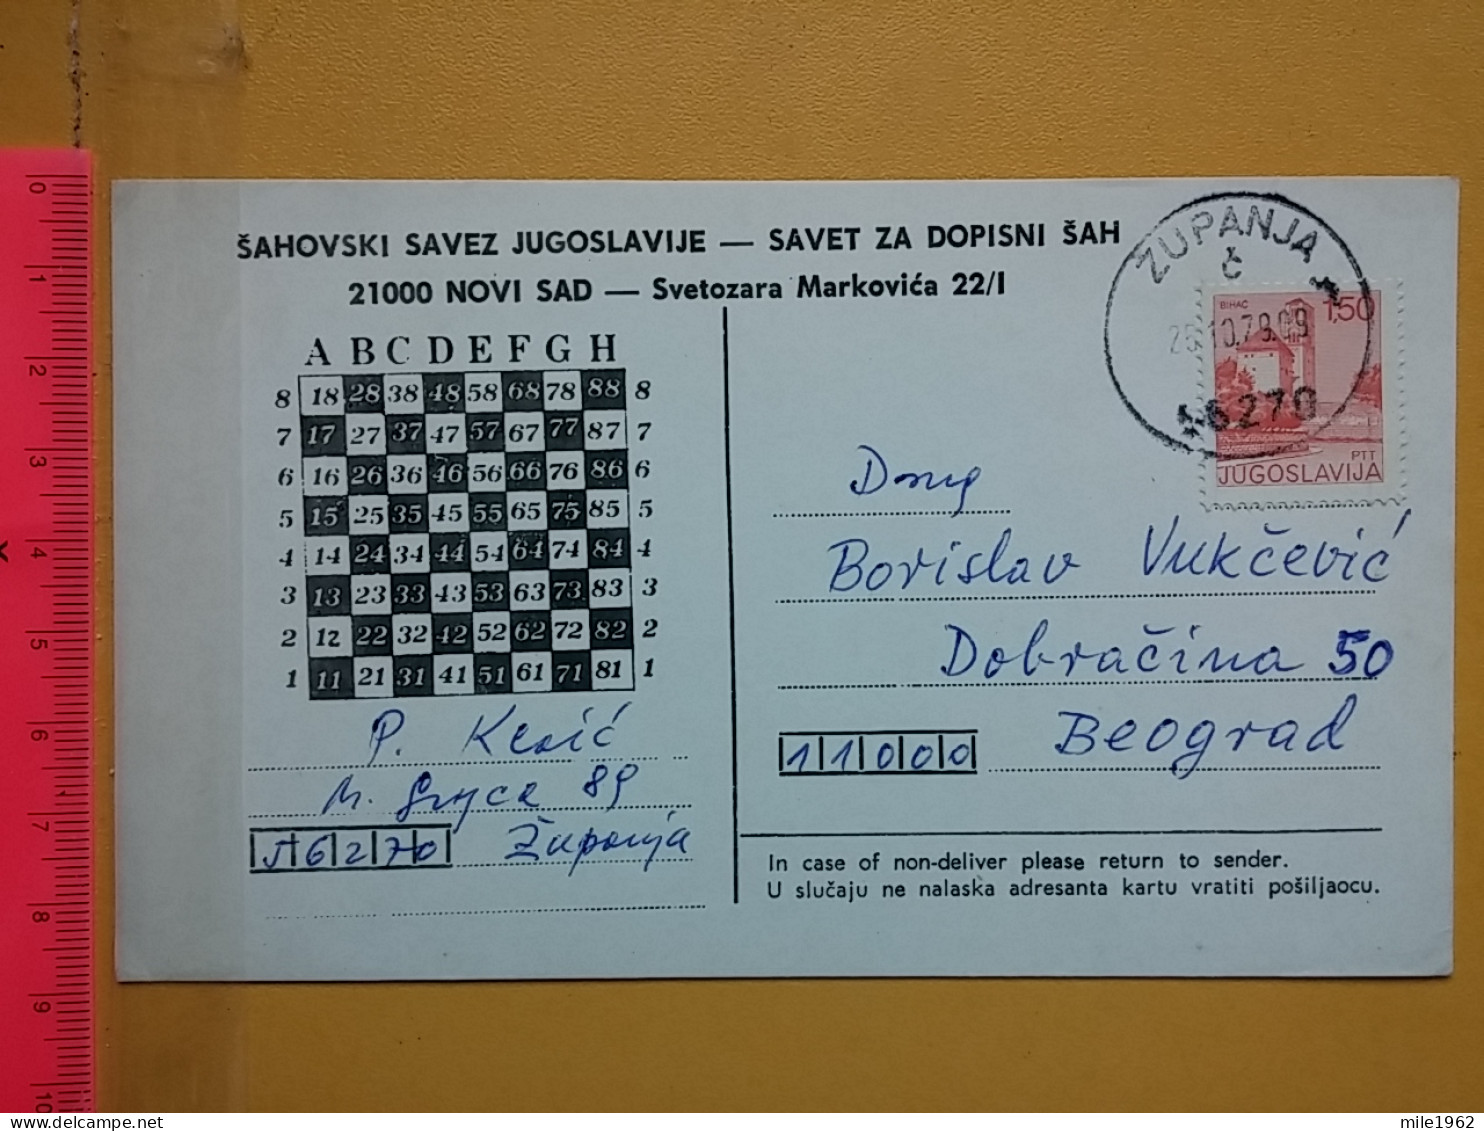 ŠAHOVSKI SAVEZ JUGOSLAVIJE — SAVET ZA DOPISNI ŠAH
21000 NOVI SAD — Svetozara Markovića 22/I
A B C D E F G H
8 18 28 38 48 58 68 78 88 8
7 17 27 37 47 57 67 77 87 7
6 16 26 36 46 56 66 76 86 6
5 15 25 35 45 55 65 75 85 5
4 14 24 34 44 54 64 74 84 4
3 13 23 33 43 53 63 73 83 3
2 12 22 32 42 52 62 72 82 2
1 11 21 31 41 51 61 71 81 1
P.
M. 89
56270 Županja
ŽUPANJA
č
10.79.09
56270
BIHAĆ 1,50
PTT
JUGOSLAVIJA
Drug
Borislav Vukčević
Dobračina 50
11000 Beograd
In case of non-deliver please return to sender.
U slučaju ne nalaska adresanta kartu vratiti pošiljaocu.
0
1
2
3
4
5
6
7
8
9
10
mile1962